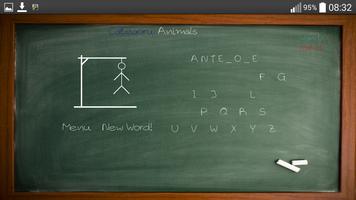 95% 08:32
Category: Animals
ANTE_O_E
F G
I J L
P Q R S
Menu New Word!
U V W X Y Z